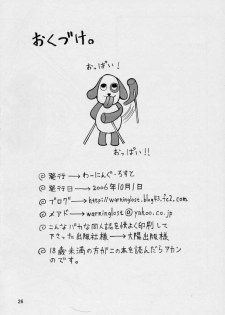 おくづけ。
おっぱい!
おっぱい!!
@ 発行→わーにんぐ・ろすと
@ 発行日→2006年10月1日
@ ブログ→http://warninglost.blog43.fc2.com
@ メアド→warninglost@yahoo.co.jp
@ こんなバカな同人誌を快よく印刷して
下さった出版社様→大陽出版様
@ 18歳未満の方がこの本を読んだらアカン
のです。
26